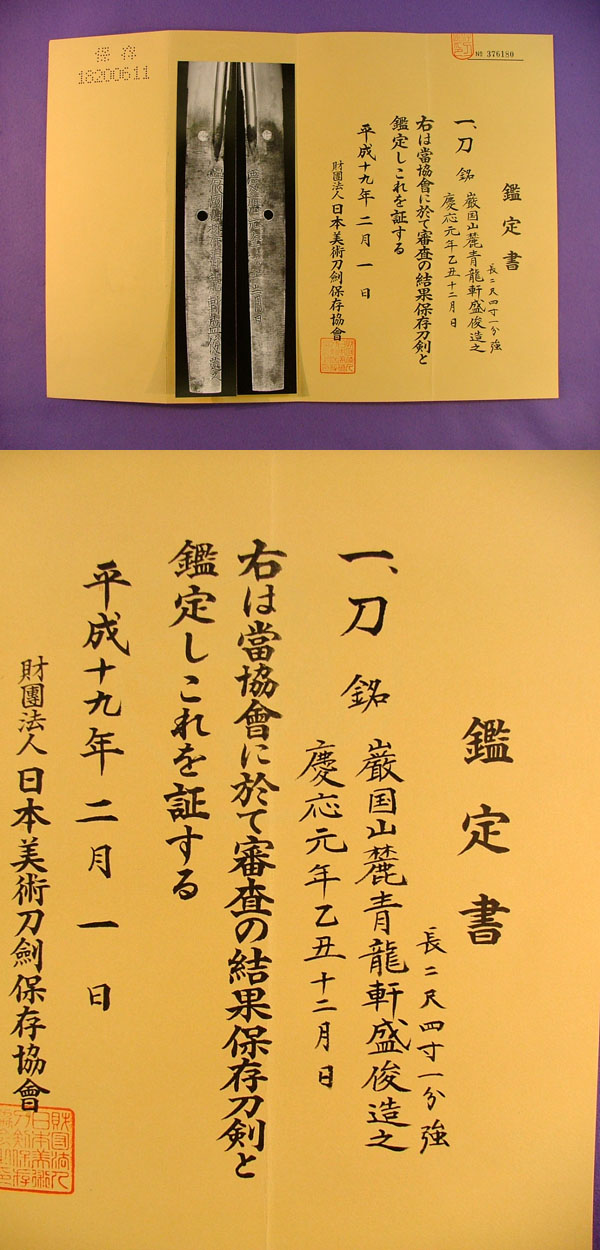 保存
18200611
No 376180
鑑定書
長二尺四寸一分強
一、刀 銘 巌国山麓青龍軒盛俊造之
慶応元年乙丑十二月日
右は當協會に於て審査の結果保存刀剣と
鑑定しこれを証する
平成十九年二月一日
財團法人日本美術刀劍保存協會
鑑定書
長二尺四寸一分強
一、刀 銘 巌国山麓青龍軒盛俊造之
慶応元年乙丑十二月日
右は當協會に於て審査の結果保存刀剣と
鑑定しこれを証する
平成十九年二月一日
財團法人日本美術刀劍保存協會